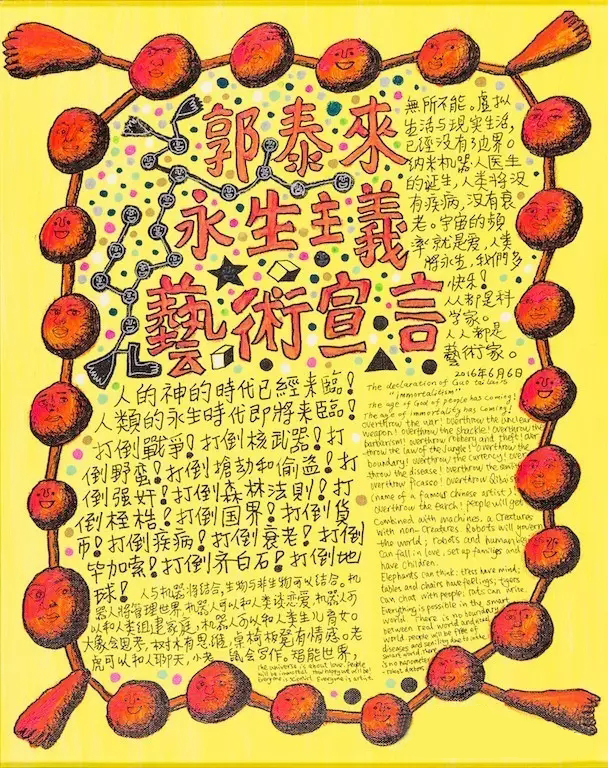 郭泰來
永生主義
藝術宣言
人的神的時代已經来臨!
人類的永生時代即將来臨!
打倒戰爭!打倒核武器!打
倒野蛮!打倒搶劫和偷盗!打
倒强奸!打倒森林法則!打
倒桎梏!打倒国界!打倒貨
币!打倒疾病!打倒衰老!打倒
毕加索!打倒齐白石!打倒地
球!
人与机器将結合,生物与非生物可以结合。机
器人將管理世界,机器人可以和人类谈恋爱,机器人可
以和人类组建家庭,机器人可以和人类生儿育女。
大象会思考,树木有思维,桌椅板凳有情感。老
虎可以和人聊天,小老鼠会写作。智能世界,
無所不能。虚拟
生活与現实生活,
已經没有了边界。
纳米机器人医生
的诞生,人类將没
有疾病,没有衰
老。宇宙的頻
率就是爱,人类
將永生,我們多
快乐!
人人都是科
学家。
人人都是
藝術家。
2016年6月6日
The declaration of Guo tai lai's
"immortalitism"
The age of God of people has coming!
The age of immortality has coming!
overthrow the war! overthrow the nuclear
weapon! overthrow the shackle! overthrow the
barbarism! overthrow robbery and theft! over
throw the law of the jungle! overthrow the
boundary! overthrow the currency! over
throw the disease! overthrow the
overthrow ficasso! overthrow Qibai
(name of a famous chinese artist)!
overthrow the earth! people will get
Combined with machines, a Creatures
with non-Creatures. Robots will govern
the world; robots and human beings
Can fall in love, set up families and
have Children.
Elephants can think; trees have mind;
tables and chairs have feelings; tigers
can chat with people; rats can write.
Everything is possible in the smart
world. There is no boundary
between real world and
world. people will be free of
diseases and
the universe is about love. people
will be immortal. how happy we will be!
Everyone is scientist. Everyone is artist.